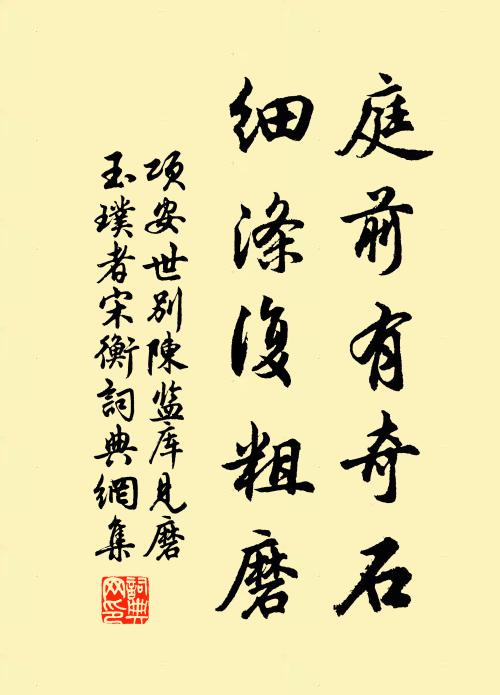 庭前有奇石
细涤復粗磨
项安世别陳监库見磨
玉璞者宋衡詞典網集
詞典网印